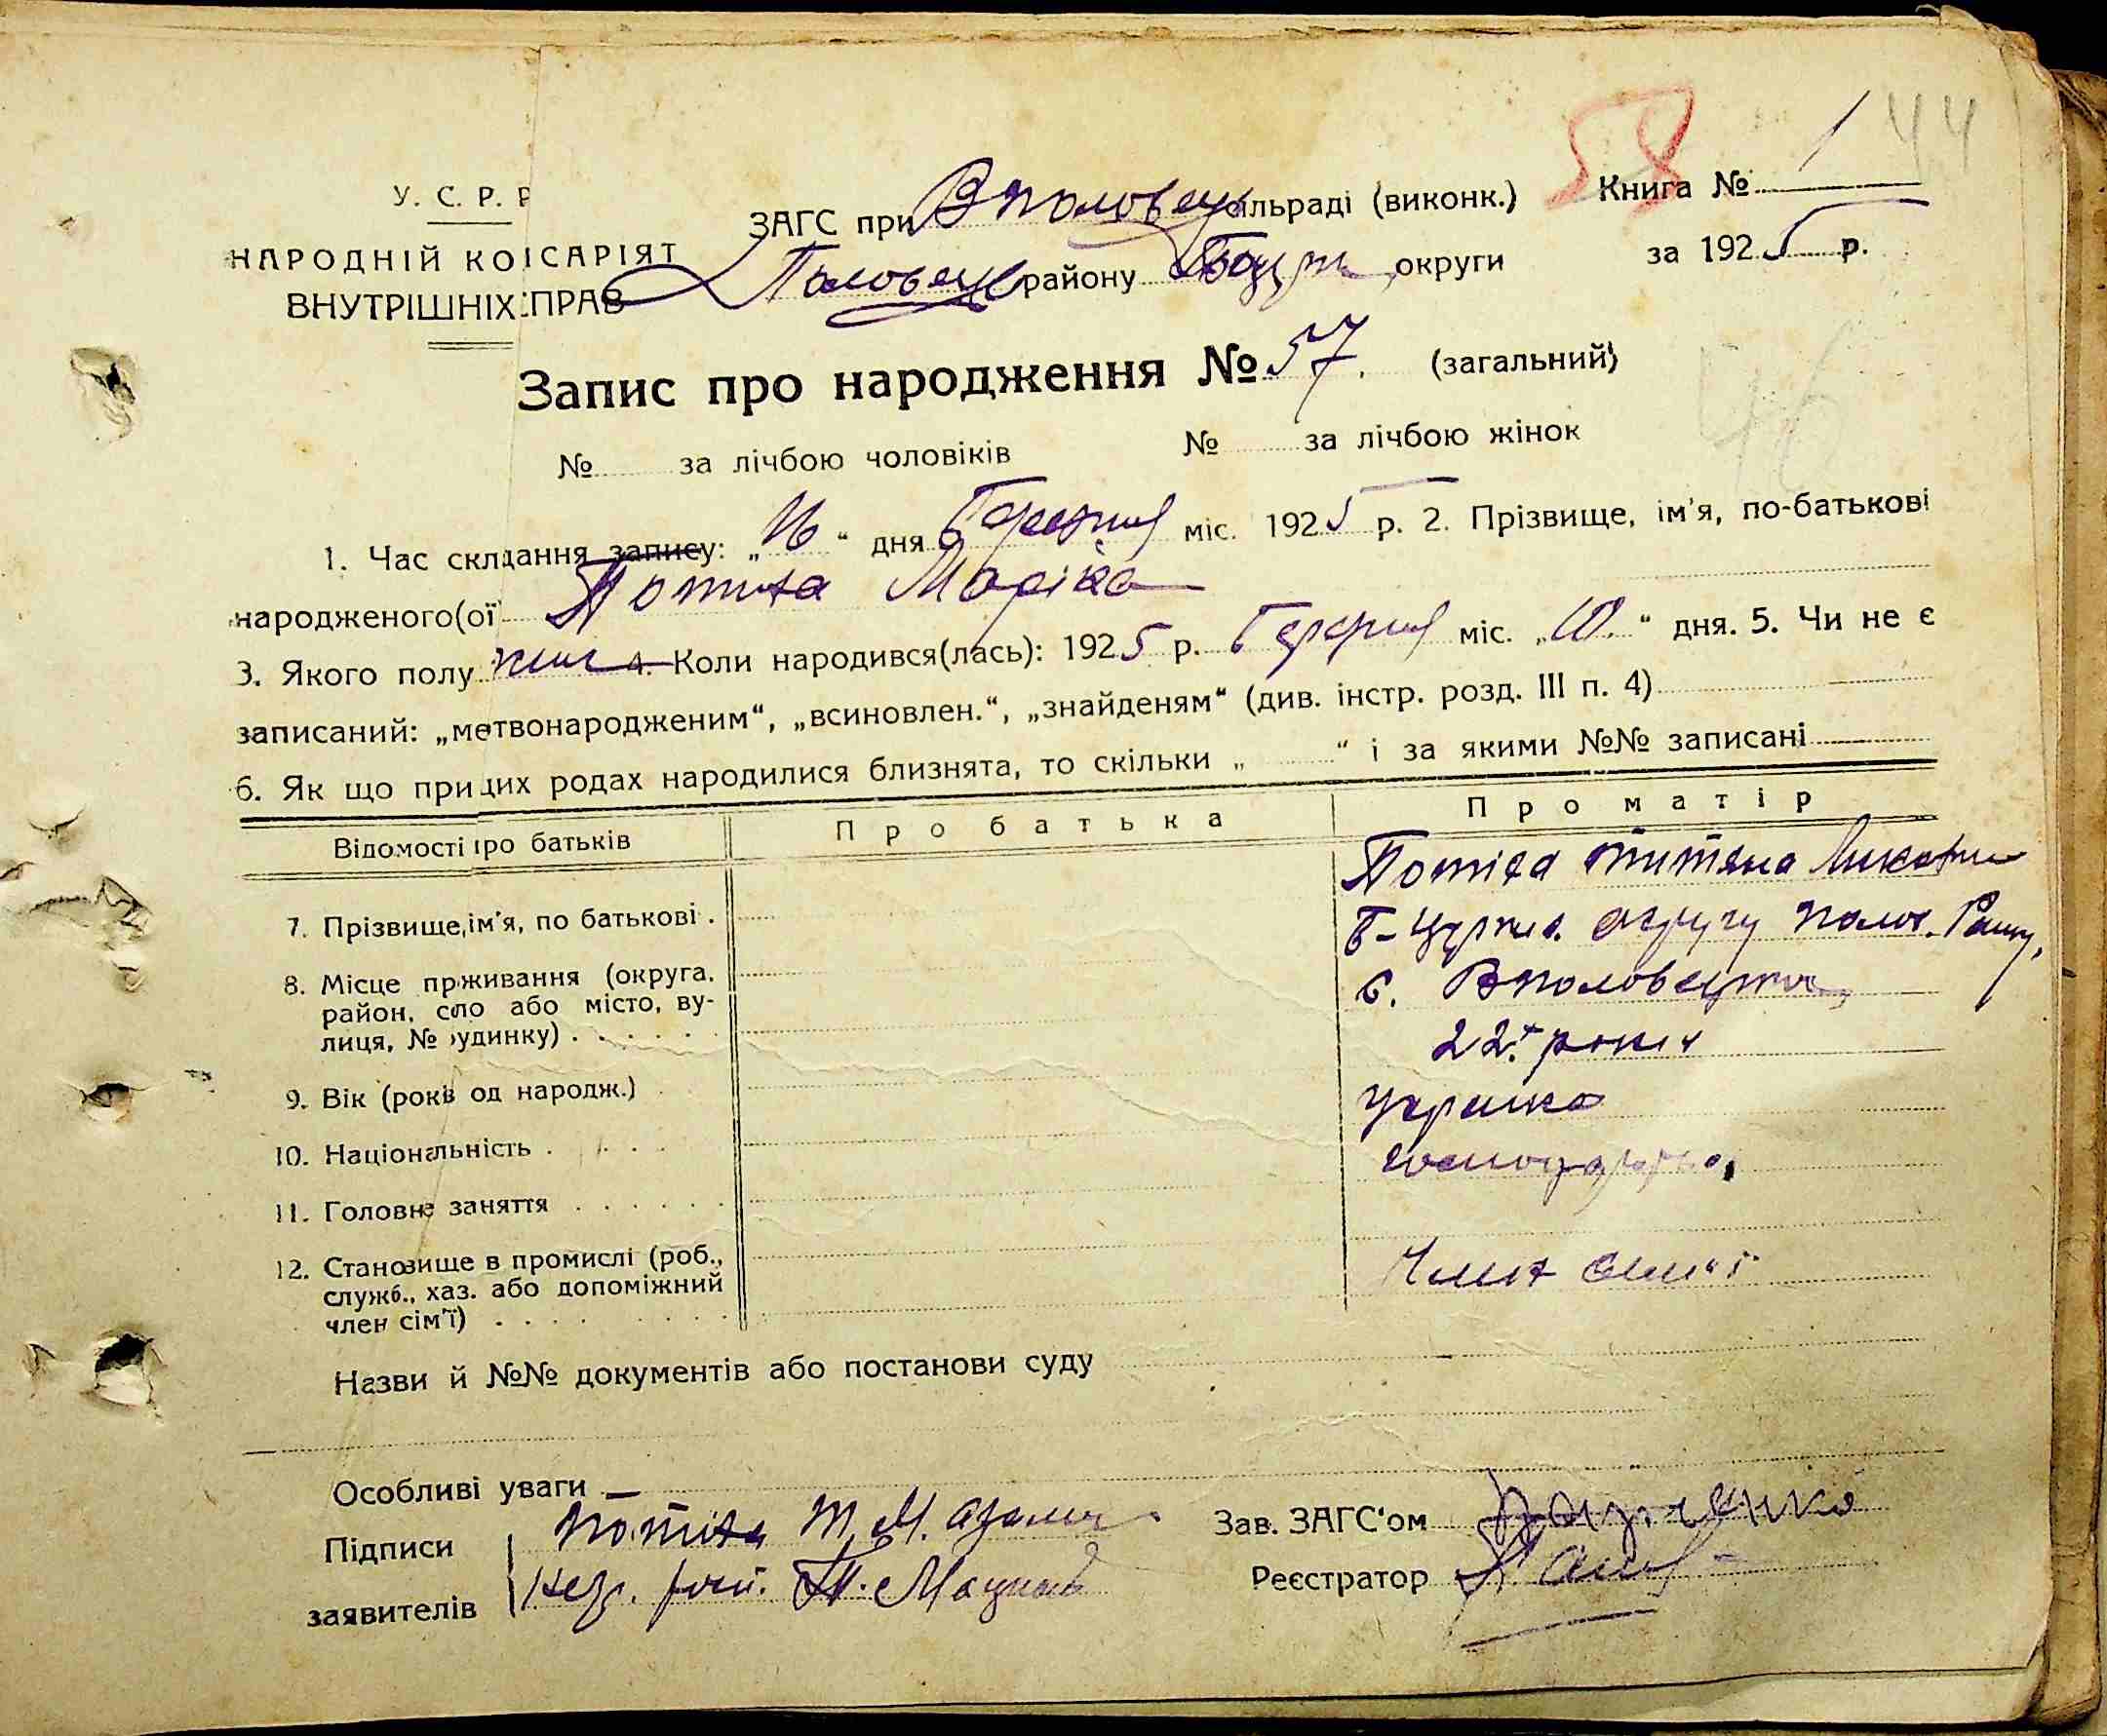 58
44
У. С. Р. Р
НАРОДНІЙ КОІСАРІЯТ
ВНУТРІШНІХ ПРАВ
ЗАГС при Вполовец сільраді (виконк.) Книга № 1
Половец району округи за 1925 р.
Запис про народження № 57. (загальний)
46
№ за лічбою чоловіків № за лічбою жінок
1. Час складання запису: „16“ дня Березня міс. 1925 р. 2. Прізвище, ім'я, по-батькові
народженого(ої Потіха Марія
3. Якого полу жін 4. Коли народився(лась): 1925 р. Березня міс. „10.“ дня. 5. Чи не є
записаний: „метвонародженим“, „всиновлен.“, „знайденям“ (див. інстр. розд. III п. 4)
6. Як що при цих родах народилися близнята, то скільки „ “ і за якими №№ записані
Відомості про батьків Про батька Про матір
7. Прізвище, ім'я, по батькові . Потіха Титяна
8. Місце прживання (округа, район, сло або місто, вулиця, № удинку) . Б-Церків. округу Полов. Райну,
с. Вполовецьке
9. Вік (років од народж.) 22 роки
10. Національність . Українка
11. Головне заняття
12. Становище в промислі (роб., служб., хаз. або допоміжний член сім'ї) Член сем'ї
Назви й №№ документів або постанови суду
Особливі уваги —
Підписи заявителів Потіха Т. М.
Зав. ЗАГС'ом
Реєстратор